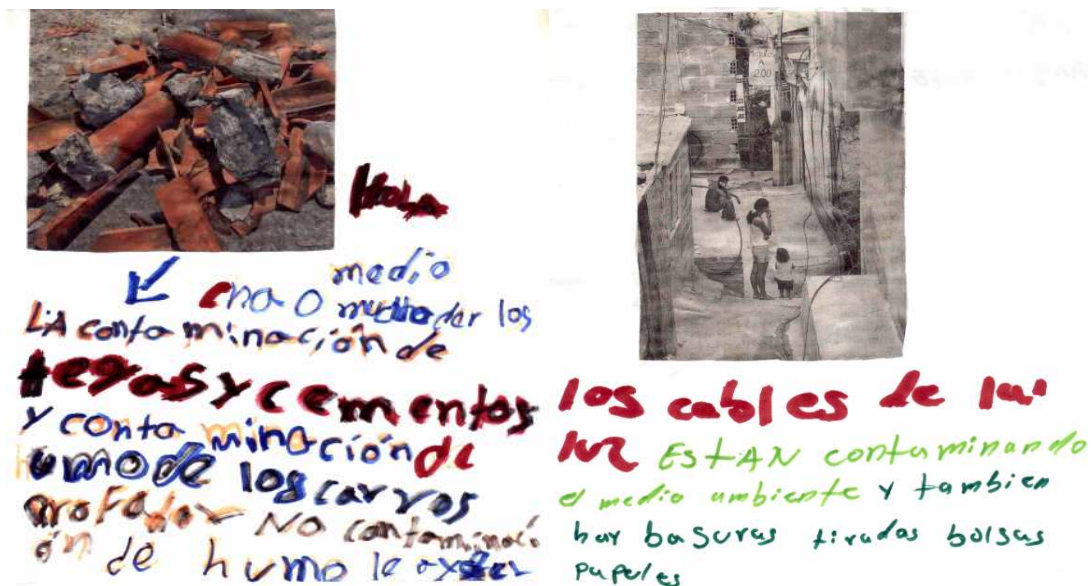 HOLA
medio
LA contaminación de
tegas y cementos
y contaminación de
humo de los carros
NO contaminaci
ón de humo
A
200
los cables de la
luz EStAN contaminando
el medio ambiente y tambien
hay basuras tiradas bolsas
papeles